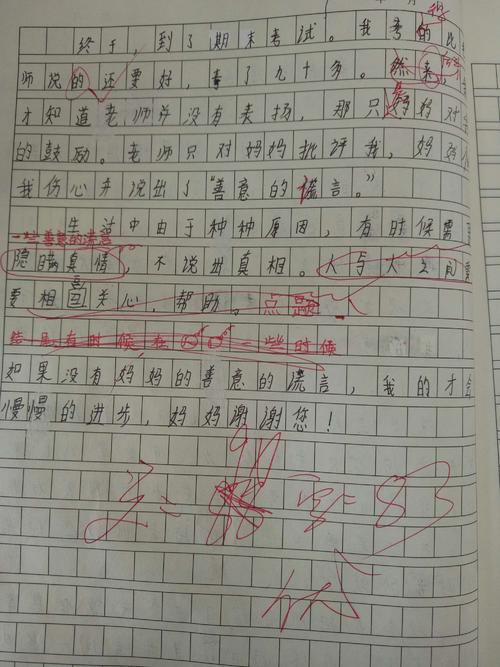 得
终于，到了期末考试。我考的比
师说的还要好，考了九十多。然来，
才知道老师并没有表扬，那只妈妈对
的鼓励。老师只对妈妈批评我，妈妈
我伤心并说出了“善意的谎言。”
生活中由于种种原因，有时候需
一些善意的谎言
隐瞒真情，不说出真相。人与人之间要
要相互关心，帮助。点题
结果有时候在 一些时候
如果没有妈妈的善意的谎言，我的才会
慢慢的进步，妈妈谢谢您！
90
83
优